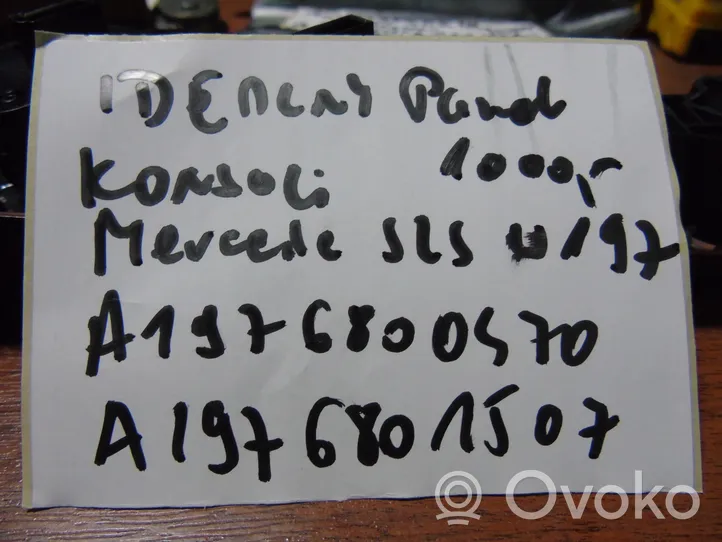 IDEALNY Panel
Konsoli 1000,-
Mercede SLS W197
A1976800470
A1976801507
Ovoko